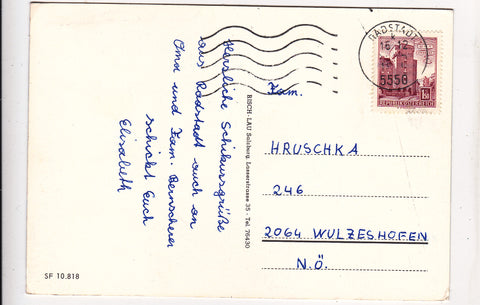 Herzliche Schikursgrüße
aus Radstadt auch an
Oma und Fam. Bernscherer
schickt Euch
Elisabeth
SF 10.818
RISCH-LAU Salzburg, Losserstrasse 35 - Tel. 76430
RADSTADT
5550
REPUBLIK ÖSTERREICH
Fam.
HRUSCHKA
246
2064 WULZESHOFEN
N.Ö.